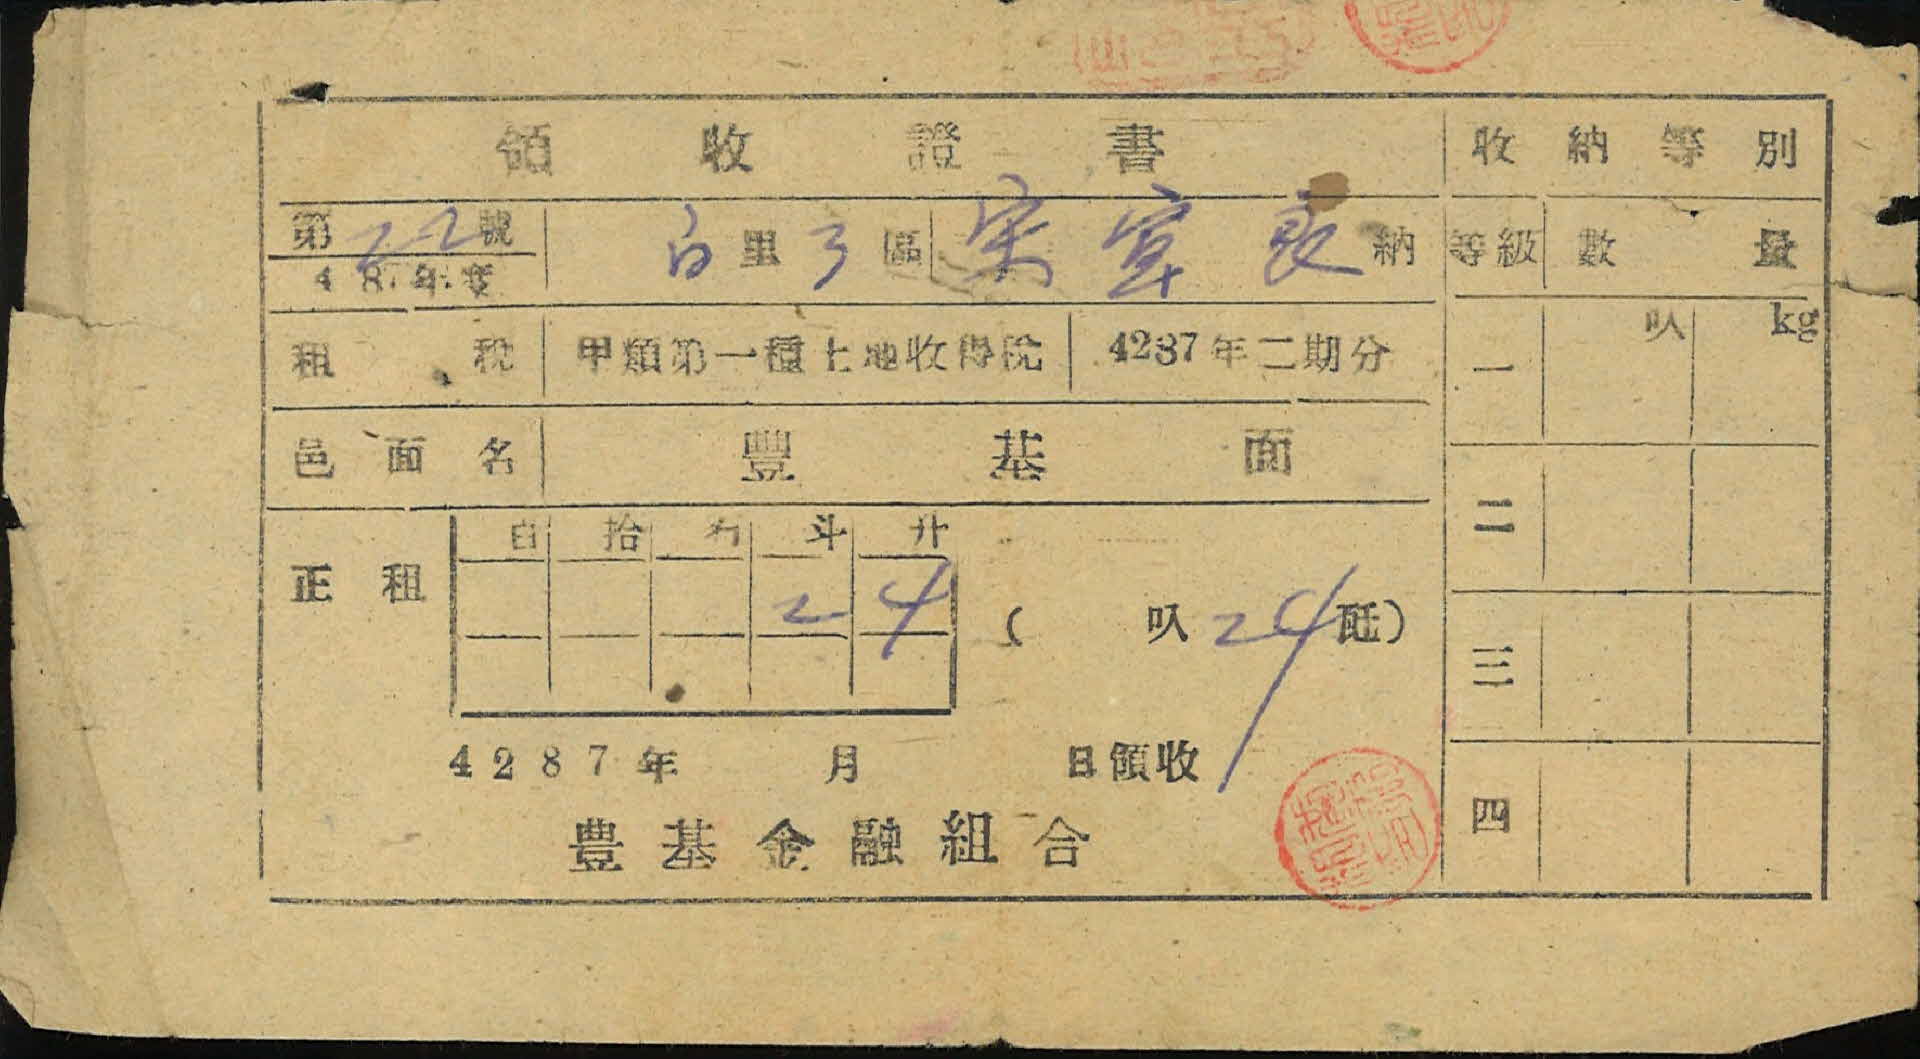 領收證書
收納等別
第22號
白里3區 宋 良 納
等級 數量
487年度
叺 kg
租稅 甲類第一種土地收得稅 4287年二期分
一
邑面名 豐基面
二
百 拾 石 斗 升
正租 2 4 ( 叺 24 瓩)
三
4287年 月 日領收
四
豊基金融組合